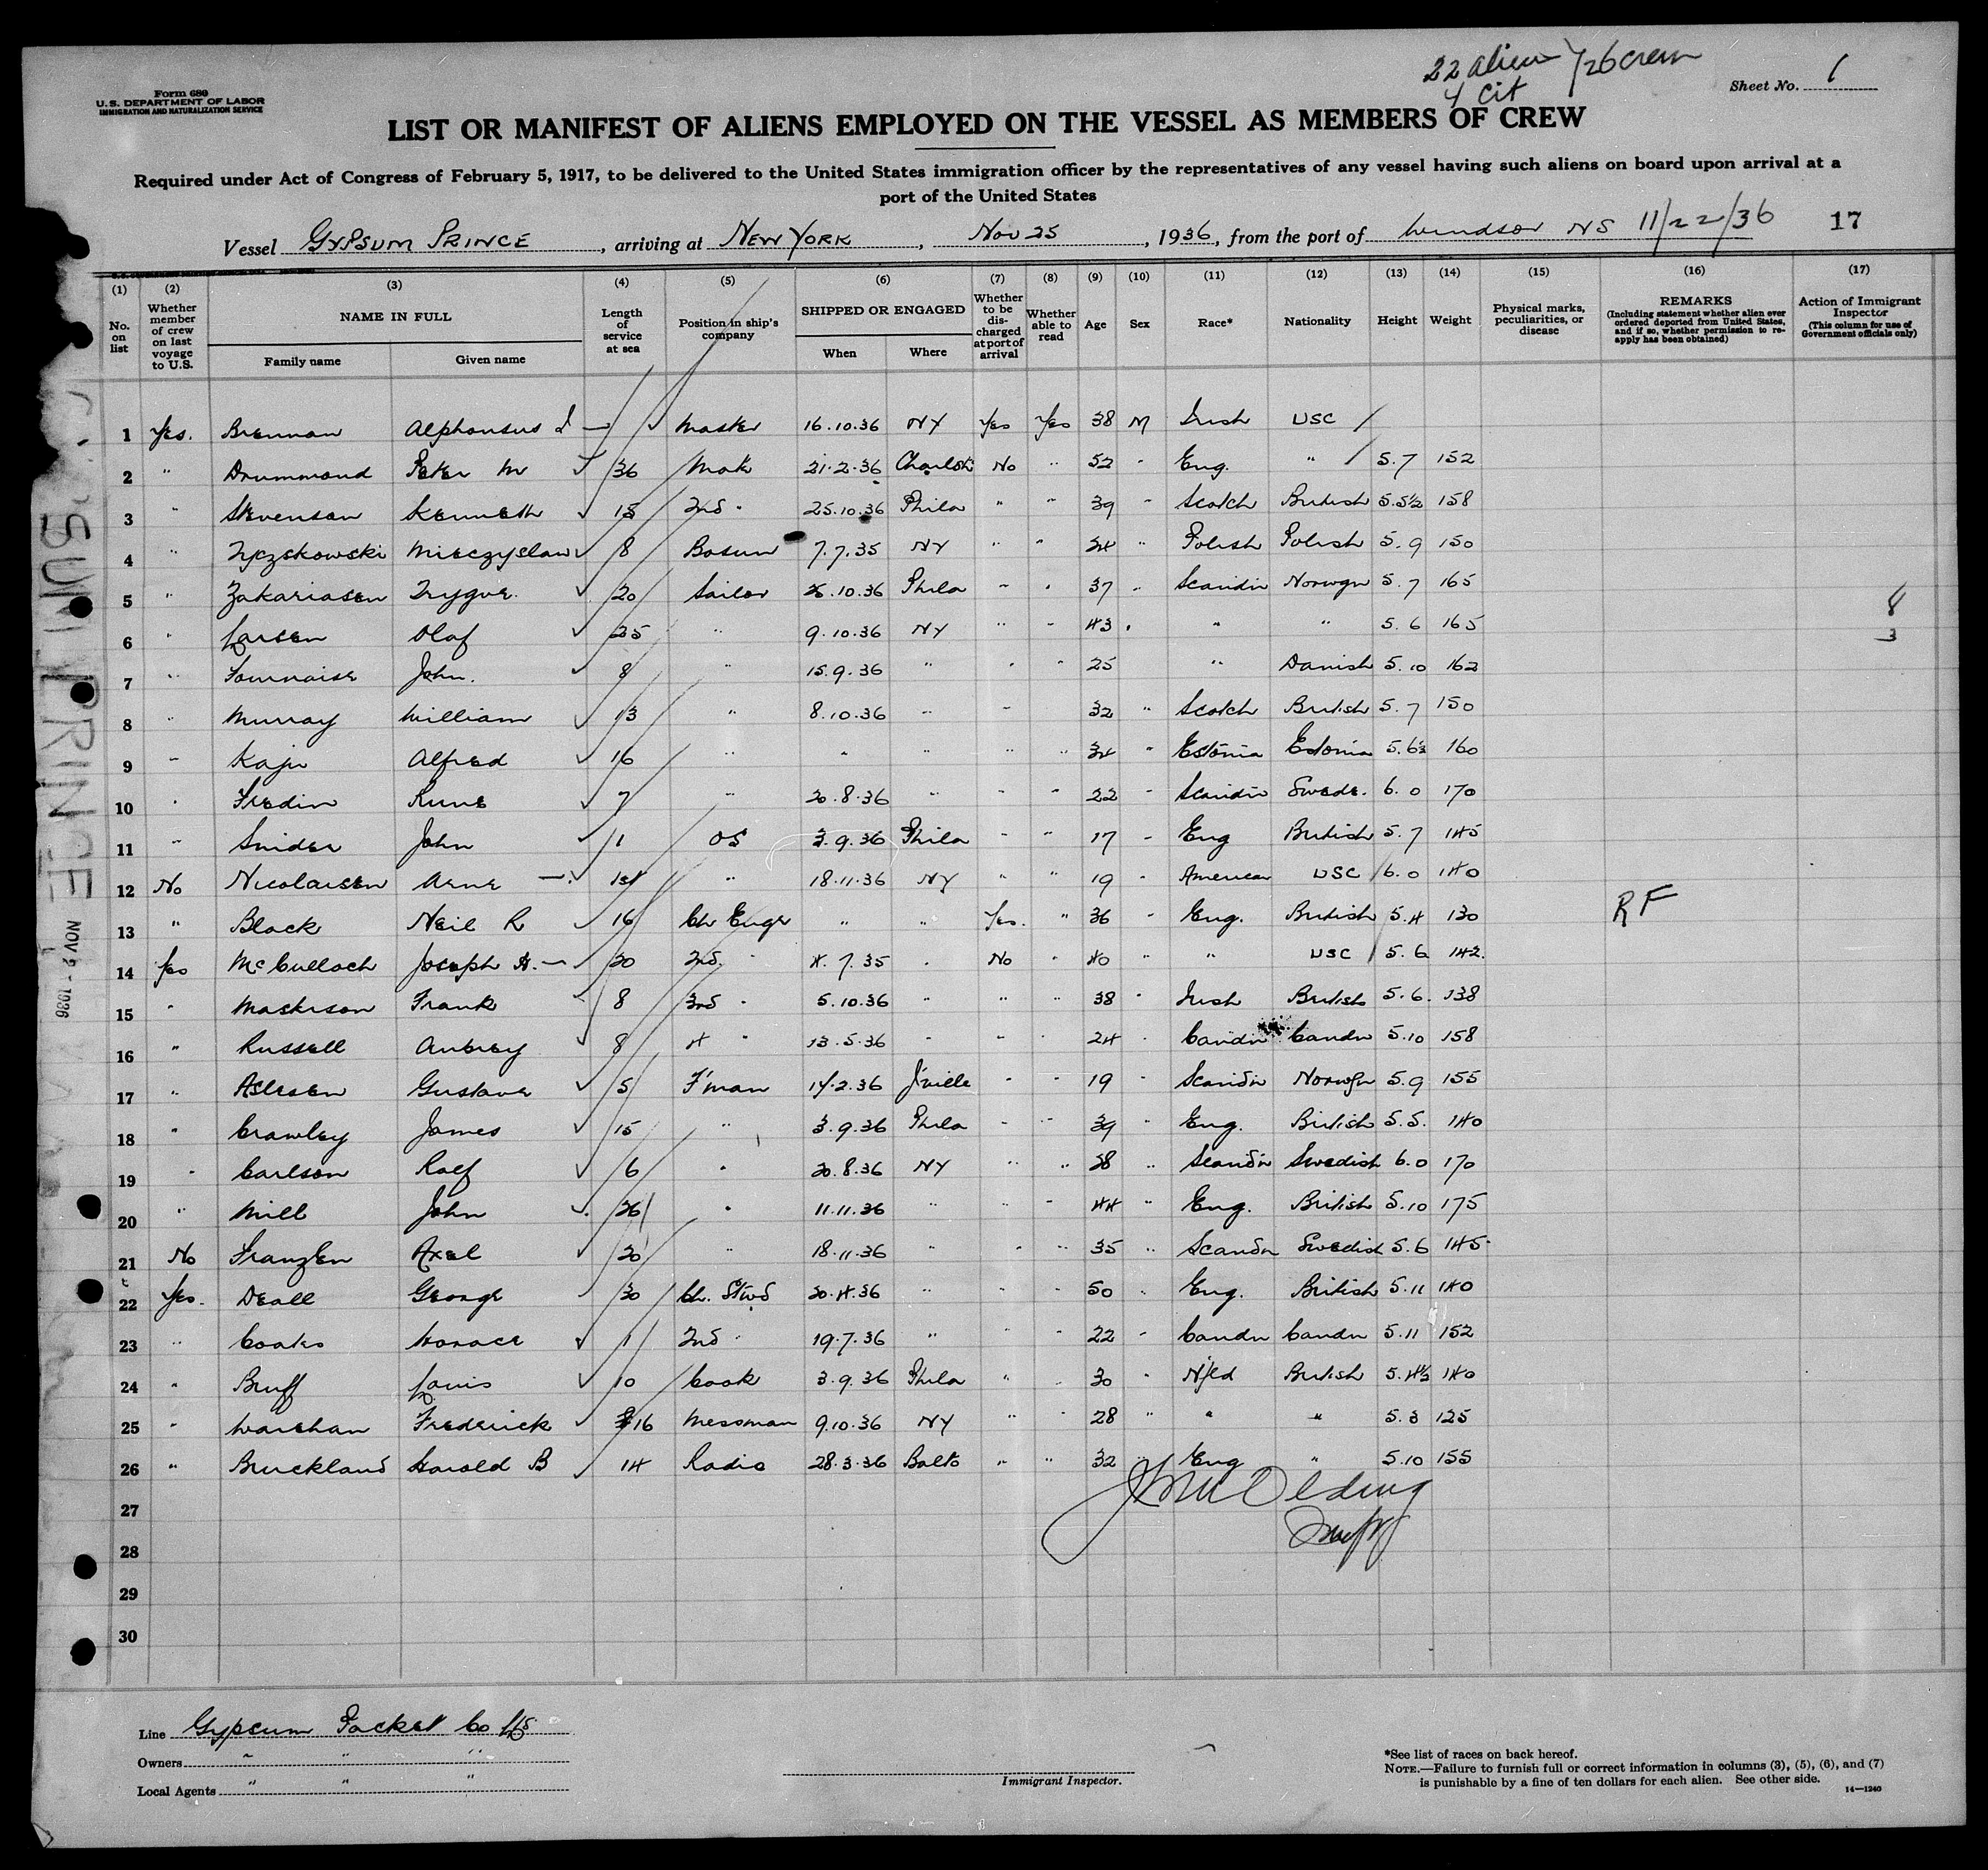 22 alien / 26 crew
4 cit
Form 680
U.S. DEPARTMENT OF LABOR
IMMIGRATION AND NATURALIZATION SERVICE
Sheet No. 1
LIST OR MANIFEST OF ALIENS EMPLOYED ON THE VESSEL AS MEMBERS OF CREW
Required under Act of Congress of February 5, 1917, to be delivered to the United States immigration officer by the representatives of any vessel having such aliens on board upon arrival at a
port of the United States
Vessel GYPSUM PRINCE, arriving at NEW YORK, Nov 25, 1936, from the port of Windsor NS 11/22/36 17
(1) (2) (3) (4) (5) (6) (7) (8) (9) (10) (11) (12) (13) (14) (15) (16) (17)
No. on list
Whether member of crew on last voyage to U.S.
NAME IN FULL
Family name Given name
Length of service at sea
Position in ship's company
SHIPPED OR ENGAGED
When Where
Whether to be discharged at port of arrival
Whether able to read
Age
Sex
Race*
Nationality
Height
Weight
Physical marks, peculiarities, or disease
REMARKS
(Including statement whether alien ever ordered deported from United States, and if so, whether permission to reapply has been obtained)
Action of Immigrant Inspector
(This column for use of Government officials only)
1 Yes. Brennan Alphonsus I — Master 16.10.36 NY Yes Yes 38 M Irish USC
2 " Drummond Peter M 36 Mate 21.2.36 No " 52 " Eng. " 5.7 152
3 " Stevenson Kenneth 18 2nd " 25.10.36 Phila " " 39 " Scotch British 5.5½ 158
4 " Zyczskowski Mieczyslaw 8 Bosun 7.7.35 NY " " 24 " Polish Polish 5.9 150
5 " Zakariasen Trygve 20 Sailor 26.10.36 Phila " " 37 " Scandin Norwgn 5.7 165
6 " Larsen Olaf 25 " 9.10.36 NY " " 43 " " " 5.6 165
7 " Fournaise John. 8 " 15.9.36 " " " 25 " Danish 5.10 162
8 " Murray William 13 " 8.10.36 " " 32 " Scotch British 5.7 150
9 " Kaju Alfred 16 " " " " " 34 " Estonia Estonia 5.6½ 160
10 " Fredin Rune 7 " 20.8.36 " " " 22 " Scandin Swede. 6.0 170
11 " Snider John 1 OS 3.9.36 Phila " " 17 " Eng British 5.7 145
12 No Nicolaisen Arne — " 18.11.36 NY " " 19 " American USC 6.0 140
13 " Black Neil R 16 Ch Engr " " Yes. " 36 " Eng. British 5.4 130 RF
14 Yes McCulloch Joseph H. — 20 2nd " 4.7.35 " No " 40 " " USC 5.6 142.
15 " Masterson Frank 8 3rd " 5.10.36 " " " 38 " Irish British 5.6. 138
16 " Russell Aubrey 8 4 " 13.5.36 " " " 24 " Candn Candn 5.10 158
17 " Aslesen Gustave 5 F'man 14.2.36 J'ville " " 19 " Scandin Norwgn 5.9 155
18 " Crawley James 15 " 3.9.36 Phila " " 39 " Eng. British 5.5. 140
19 " Carlson Ralf 6 " 20.8.36 NY " " 28 " Scandin Swedish 6.0 170
20 " Mill John 26 " 11.11.36 " " " 44 " Eng. British 5.10 175
21 No Franzen Axel 20 " 18.11.36 " " " 35 " Scandn Swedish 5.6 145
22 Yes. Deall George 30 Ch. Stwd 20.4.36 " " " 50 " Eng. British 5.11 140
23 " Coates Horace 1 2nd " 19.7.36 " " " 22 " Candn Candn 5.11 152
24 " Bruff Louis 10 Cook 3.9.36 Phila " " 30 " Nfld British 5.4½ 140
25 " Warehan Frederick 16 Messman 9.10.36 NY " " 28 " " " 5.3 125
26 " Bruckland Harold B 14 Radio 28.3.36 Balto " " 32 Eng " 5.10 155
27
28
29
30
8
3
GYPSUM PRINCE
NOV 2 - 1936
Line Gypsum Packet Co Ltd
Owners " " "
Local Agents " " "
Immigrant Inspector.
*See list of races on back hereof.
NOTE.—Failure to furnish full or correct information in columns (3), (5), (6), and (7)
is punishable by a fine of ten dollars for each alien. See other side.
14—1240